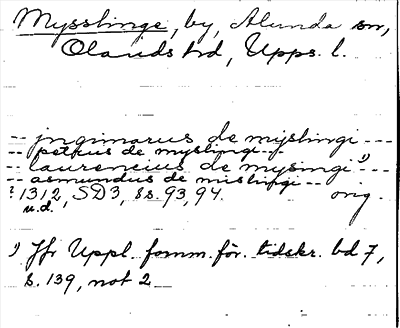 Mysslinge, by, Alunda sn,
Olands hd, Upps. l.
-- jngimarus de myslingi ---
-- petrus de myslingi --
-- laurencius de mysingi 1) --
-- asmundus de mislingi --
? 1312, SD3, ss. 93, 94. orig.
u.d.
1) Jfr Uppl. fornm. för. tidskr. bd 7,
s. 139, not 2